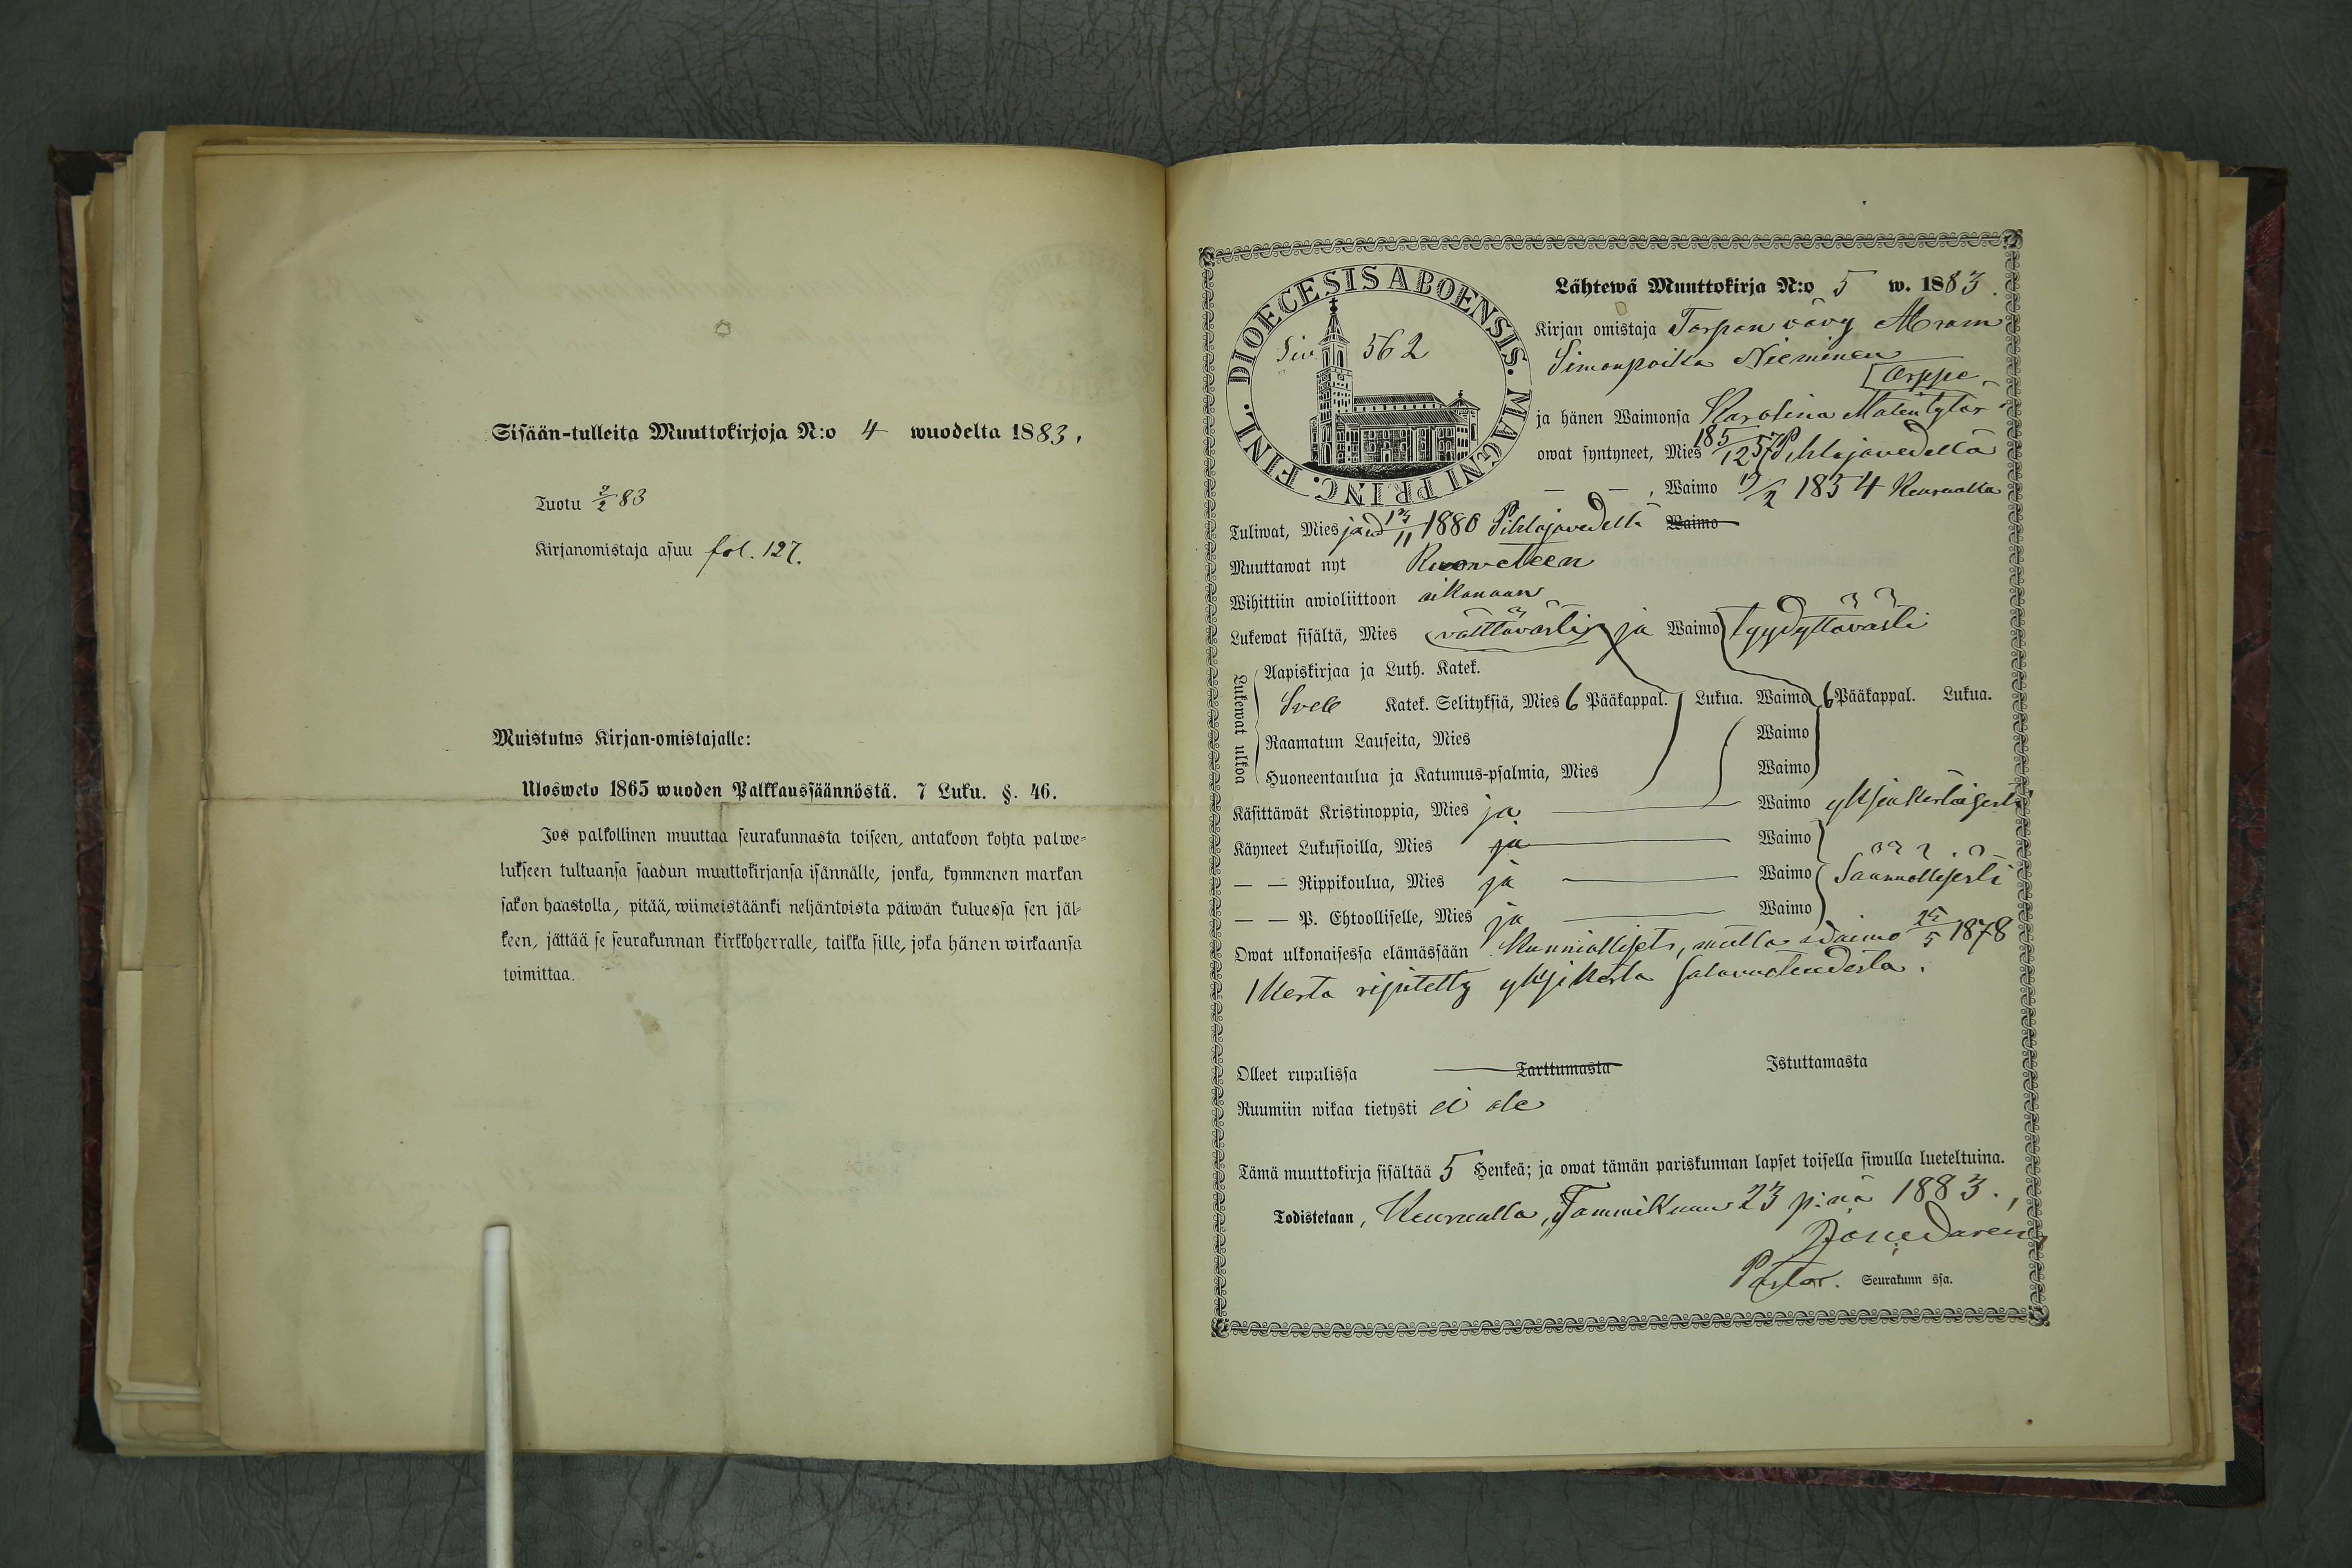 Sisään-tulleita Muuttokirjoja N:o 4 wuodelta 1883.
Tuotu 9/2 83
Kirjanomistaja asuu fol. 127.
Muistutus Kirjan-omistajalle:
Ulosweto 1865 wuoden Palkkaussäännöstä. 7 Luku. §. 46.
Jos palkollinen muuttaa seurakunnasta toiseen, antakoon kohta palwe-
lukseen tultuansa saadun muuttokirjansa isännälle, jonka, kymmenen markan
sakon haastolla, pitää, wiimeistäänki neljäntoista päiwän kuluessa sen jäl-
keen, jättää se seurakunnan kirkkoherralle, taikka sille, joka hänen wirkaansa
toimittaa.
DIOECESIS ABOENSIS. MAGNI PRINC. FINL.
Siv. 562
Lähtewä Muuttokirja N:o 5 w. 1883.
Kirjan omistaja Torpan vävy Abram
Simonpoika Nieminen
ja hänen Waimonsa Karolina Matintytär
owat syntyneet, Mies 18 5/12 57 Pihlajavedellä
— — , Waimo 19/2 1854 Keuruulla
Tuliwat, Mies 1880 Pihlajavedeltä Waimo
Muuttawat nyt Ruoveteen
Wihittiin awioliittoon aikanaan
Lukewat sisältä, Mies välttävästi ja Waimo tyydyttävästi
Lukewat ulkoa
Aapiskirjaa ja Luth. Katek.
Sveb Katek. Selityksiä, Mies 6 Pääkappal. Lukua. Waimo 6 Pääkappal. Lukua.
Raamatun Lauseita, Mies Waimo
Huoneentaulua ja Katumus-psalmia, Mies Waimo
Käsittäwät Kristinoppia, Mies ja Waimo yksinkertaisesti
Käyneet Lukusioilla, Mies ja Waimo
— — Rippikoulua, Mies ja Waimo Säännöllisesti
— — P. Ehtoolliselle, Mies ja Waimo
Owat ulkonaisessa elämässään Kunnialliset, mutta waimo 25/5 1878
1 kerta ripitetty yksikerta salavuoteudesta.
Olleet rupulissa Tarttumasta Istuttamasta
Ruumiin wikaa tietysti ei ole
Tämä muuttokirja sisältää 5 Henkeä; ja owat tämän pariskunnan lapset toisella siwulla lueteltuina.
Todistetaan, Keuruulla, Tammikuun 23 p:nä 1883.
Pastor. Seurakunn ssa.